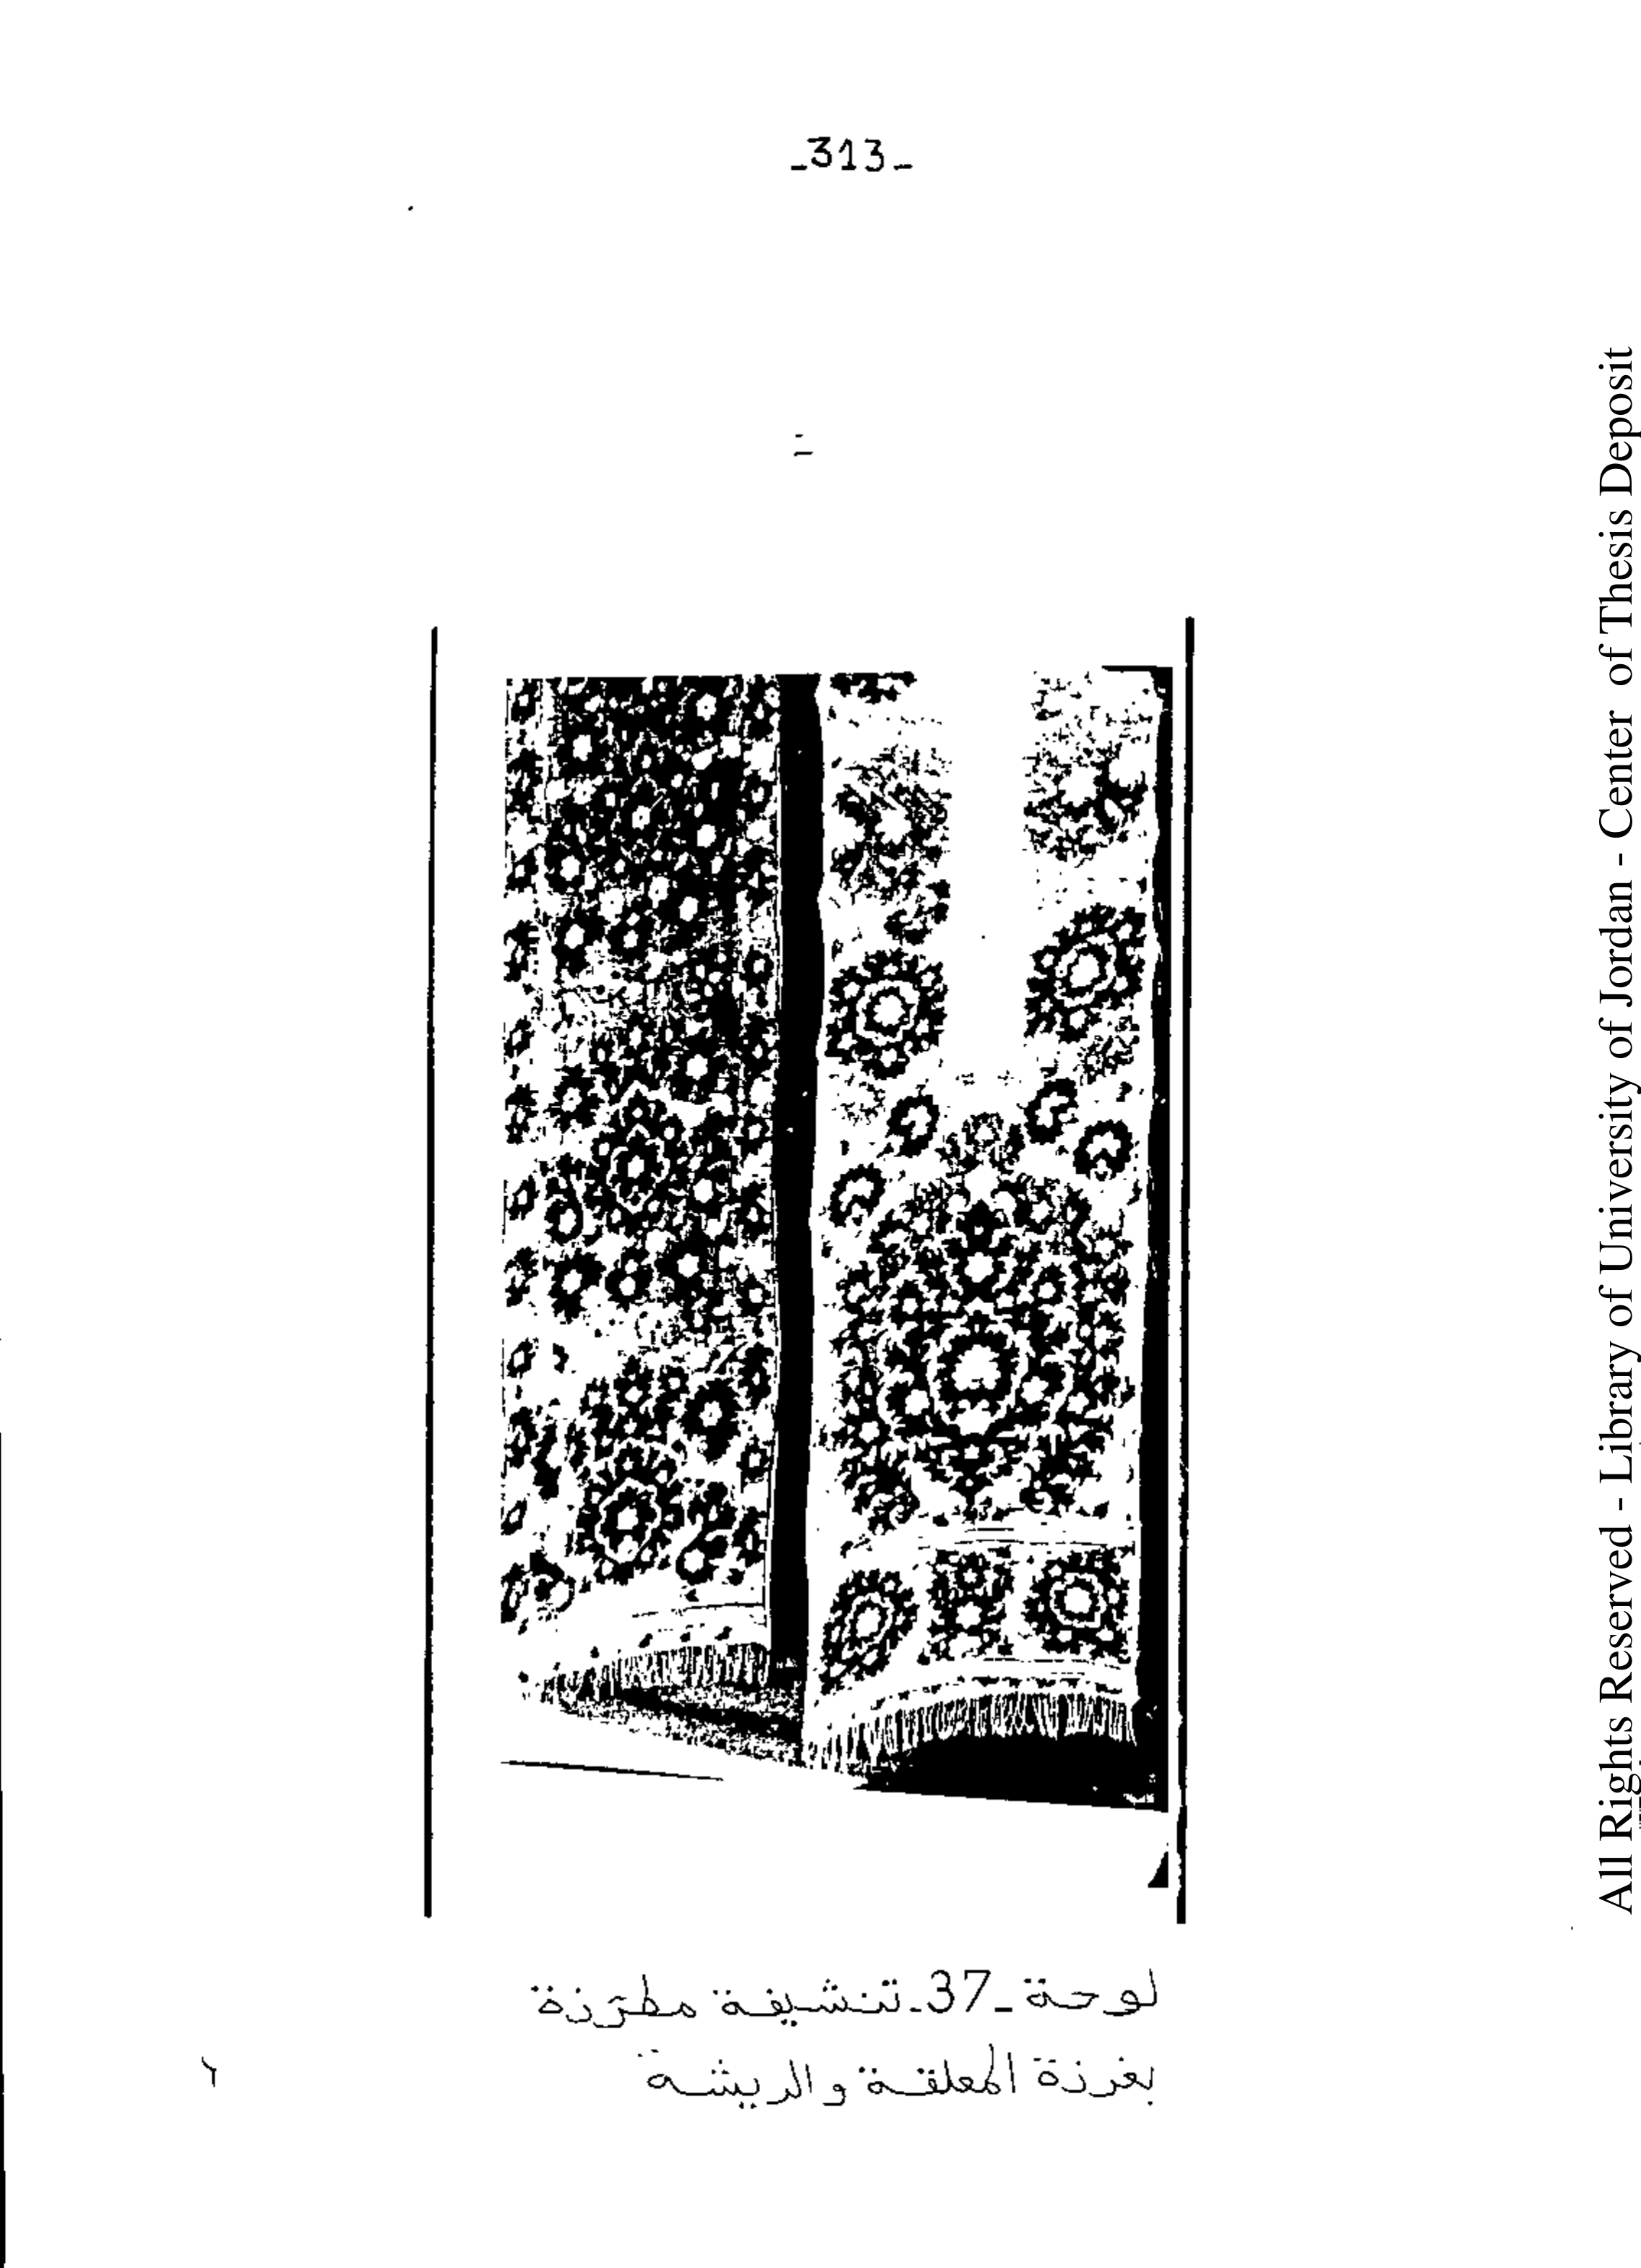 -313-
لوحة -37- تنشيفة مطرّزة
بغرزة المعلقة والريشة
All Rights Reserved - Library of University of Jordan - Center of Thesis Deposit